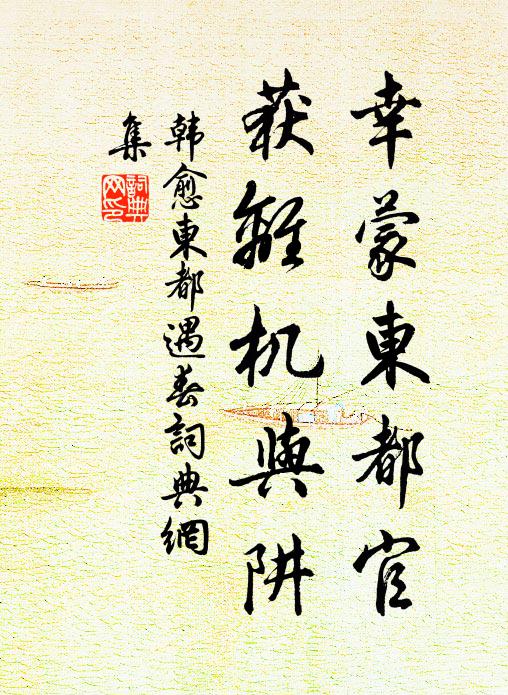 幸蒙東都官
获離机與阱
韩愈東都遇春詞典網
集
詞典
网印